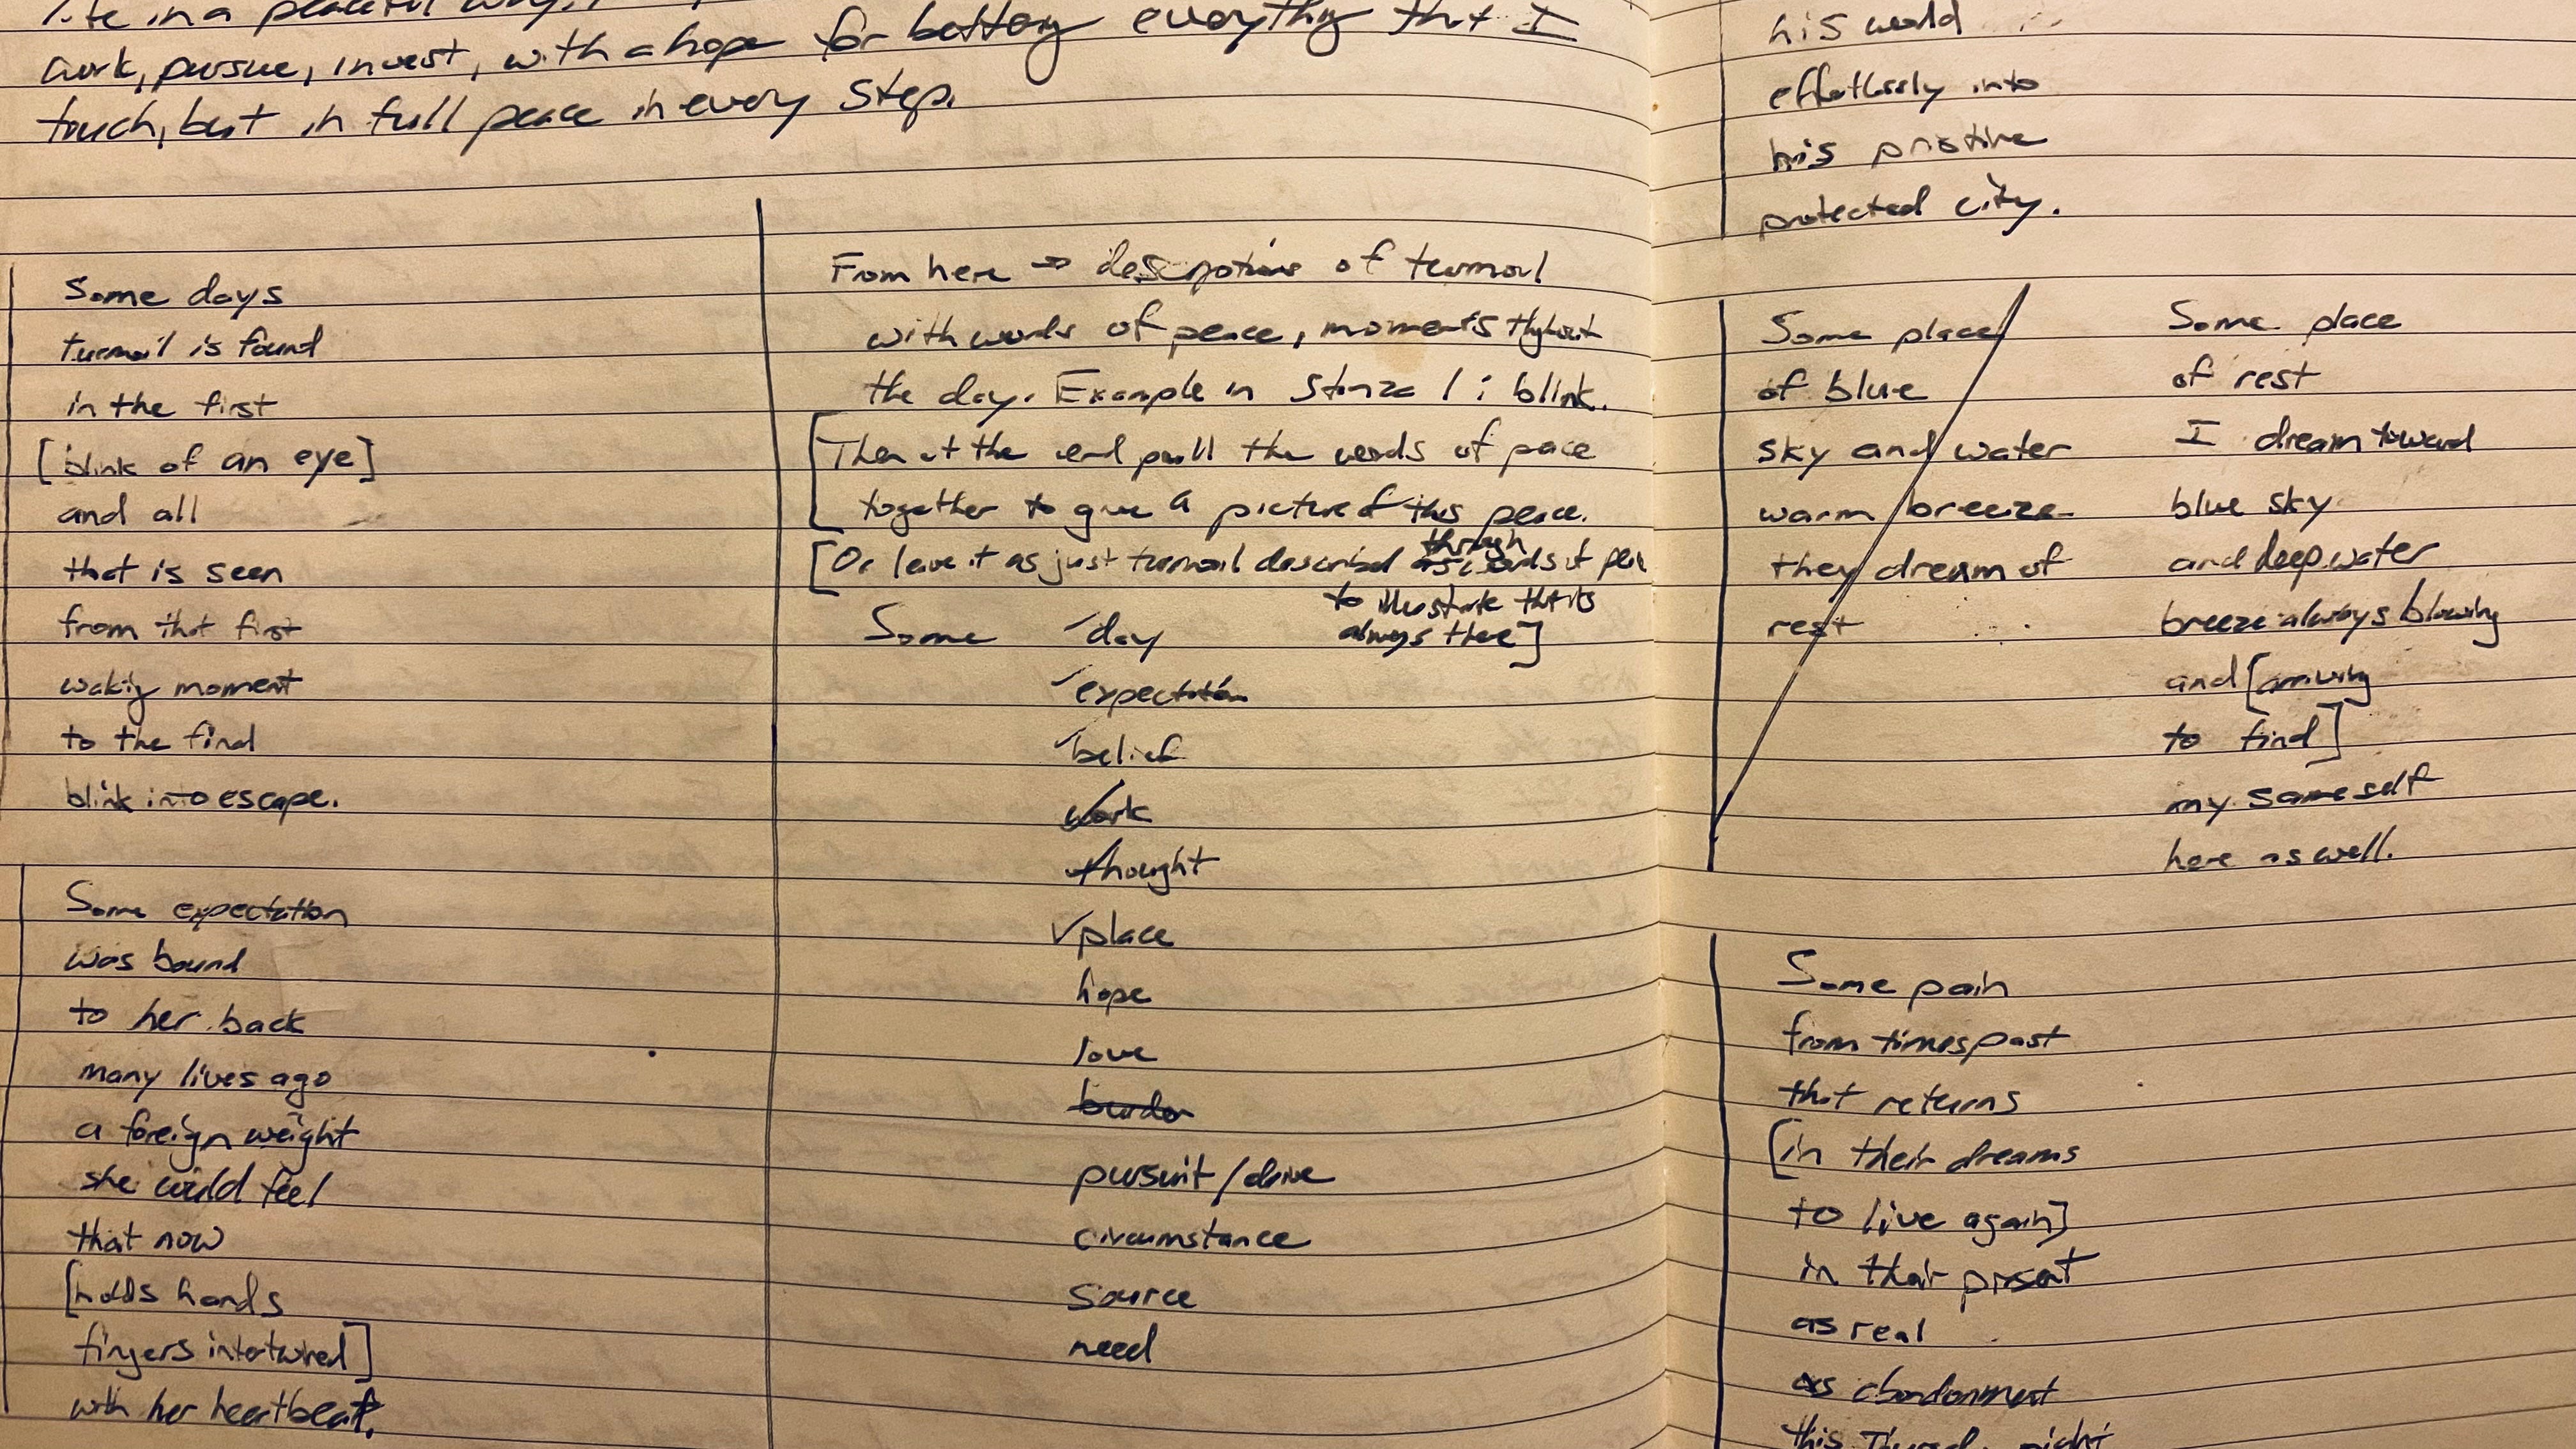 life in a peaceful way,
work, pursue, invest, with a hope for bettering everything that I
touch, but in full peace in every step.
Some days
turmoil is found
in the first
[blink of an eye]
and all
that is seen
from that first
waking moment
to the final
blink into escape.
Some expectation
was bound
to her back
many lives ago
a foreign weight
she could feel
that now
[holds hands
fingers intertwined]
with her heartbeat.
From here → descriptions of turmoil
with words of peace, moments thghout
the day. Example in Stanza 1: blink.
[Then at the end pull the words of peace
together to give a picture of this peace.
[Or leave it as just turmoil described through words of
to illustrate that its
always there]
Some ✓day
✓expectation
✓belief
✓work
✓thought
✓place
hope
love
burden
pursuit/drive
circumstance
source
need
his world
effortlessly into
his pristine
protected city.
Some place
of blue
sky and water
warm breeze
they dream of
rest
Some place
of rest
I dream toward
blue sky
and deep water
breeze always blowing
and [arriving
to find]
my same self
here as well.
Some pain
from times past
that returns
[in their dreams
to live again]
in that present
as real
as abandonment
this night